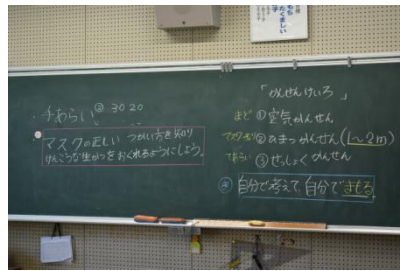 もち
たくましい
子
・手あらい② 30 20
マスクの正しい つかい方を知り
けんこうな生かつを おくれるようにしよう。
「かんせんけいろ」
まど ①空気かんせん
マスク ②ひまつかんせん(1~2m)
手あらい ③せっしょくかんせん
自分で考えて、自分できめる